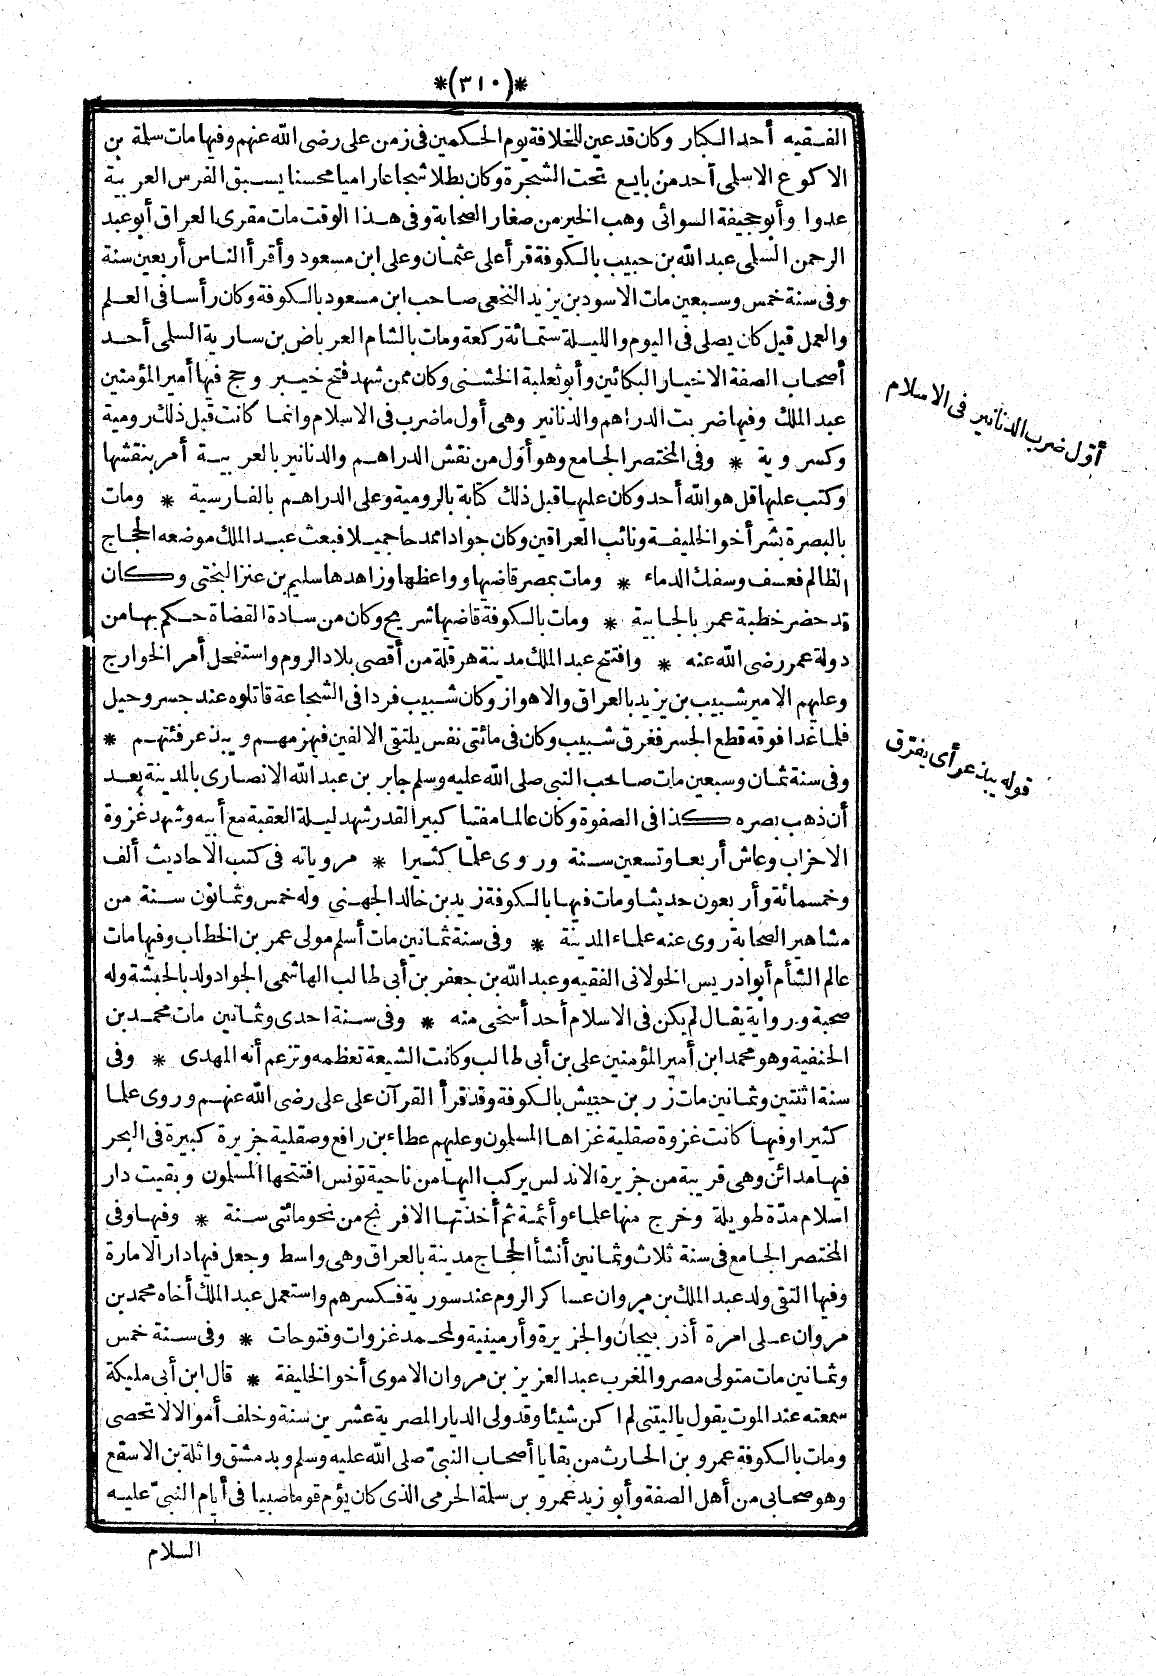 *(٣١٠)*
الفقيه أحد الكبار وكان قد عين للخلافة يوم الحكمين فى زمن على رضى الله عنهم وفيها مات سلمة بن
الاكوع الاسلمى أحد من بايع تحت الشجرة وكان بطلا شجاعا راميا محسنا يسبق الفرس العربية
عدوا وأبو جحيفة السوائى وهب الخير من صغار الصحابة وفى هذا الوقت مات مقرى العراق أبو عبد
الرحمن السلمى عبد الله بن حبيب بالكوفة قرأ على عثمان وعلى ابن مسعود وأقرأ الناس أربعين سنة
وفى سنة خمس وسبعين مات الاسود بن يزيد النخعى صاحب ابن مسعود بالكوفة وكان رأسا فى العلم
والعمل قيل كان يصلى فى اليوم والليلة ستمائة ركعة ومات بالشام العرباض بن سارية السلمى أحد
أصحاب الصفة الاخيار البكائين وأبو ثعلبة الخشنى وكان ممن شهد فتح خيبر وحج فيها أمير المؤمنين
عبد الملك وفيها ضربت الدراهم والدنانير وهى أول ما ضرب فى الاسلام وانما كانت قبل ذلك رومية
وكسروية * وفى المختصر الجامع وهو أول من نقش الدراهم والدنانير بالعربية أمر بنقشها
وكتب عليها قل هو الله أحد وكان عليها قبل ذلك كتابة بالرومية وعلى الدراهم بالفارسية * ومات
بالبصرة بشر أخو الخليفة ونائب العراقين وكان جوادا ممدحا جميلا فبعث عبد الملك موضعه الحجاج
الظالم فعسف وسفك الدماء * ومات بمصر قاضيها وواعظها وزاهدها سليم بن عنز البختى وكان
قد حضر خطبة عمر بالجابية * ومات بالكوفة قاضيها شريح وكان من سادة القضاة حكم بها من
دولة عمر رضى الله عنه * وافتتح عبد الملك مدينة هرقلة من أقصى بلاد الروم واستفحل أمر الخوارج
وعليهم الامير شبيب بن يزيد بالعراق والاهواز وكان شبيب فردا فى الشجاعة قاتلوه عند جسر وحيل
فلما غدا فوقه قطع الجسر فغرق شبيب وكان فى مائتى نفس يلتقى الالفين فيهزمهم ويبذعر فئتهم *
وفى سنة ثمان وسبعين مات صاحب النبى صلى الله عليه وسلم جابر بن عبد الله الانصارى بالمدينة بعد
أن ذهب بصره كذا فى الصفوة وكان عالما مفتيا كبير القدر شهد ليلة العقبة مع أبيه وشهد غزوة
الاحزاب وعاش أربعا وتسعين سنة وروى علما كثيرا * مروياته فى كتب الاحاديث ألف
وخمسمائة وأربعون حديثا ومات فيها بالكوفة زيد بن خالد الجهنى وله خمس وثمانون سنة من
مشاهير الصحابة روى عنه علماء المدينة * وفى سنة ثمانين مات أسلم مولى عمر بن الخطاب وفيها مات
عالم الشأم أبو ادريس الخولانى الفقيه وعبد الله بن جعفر بن أبى طالب الهاشمى الجواد ولد بالحبشة وله
صحبة ورواية يقال لم يكن فى الاسلام أحد أسخى منه * وفى سنة احدى وثمانين مات محمد بن
الحنفية وهو محمد ابن أمير المؤمنين على بن أبى طالب وكانت الشيعة تعظمه وتزعم أنه المهدى * وفى
سنة اثنتين وثمانين مات زر بن حبيش بالكوفة وقد قرأ القرآن على على رضى الله عنهم وروى علما
كثيرا وفيها كانت غزوة صقلية غزاها المسلمون وعليهم عطاء بن رافع وصقلية جزيرة كبيرة فى البحر
فيها مدائن وهى قريبة من جزيرة الاندلس يركب اليها من ناحية تونس افتتحها المسلمون وبقيت دار
اسلام مدة طويلة وخرج منها علماء وأئمة ثم أخذتها الافرنج من نحو مائتى سنة * وفيها وفى
المختصر الجامع فى سنة ثلاث وثمانين أنشأ الحجاج مدينة بالعراق وهى واسط وجعل فيها دار الامارة
وفيها التقى ولد عبد الملك بن مروان عساكر الروم عند سورية فكسرهم واستعمل عبد الملك أخاه محمد بن
مروان على امرة أذربيجان والجزيرة وأرمينية ولمحمد غزوات وفتوحات * وفى سنة خمس
وثمانين مات متولى مصر والمغرب عبد العزيز بن مروان الاموى أخو الخليفة * قال ابن أبى مليكة
سمعته عند الموت يقول ياليتنى لم اكن شيئا وقد ولى الديار المصرية عشرين سنة وخلف أموالا لا تحصى
ومات بالكوفة عمرو بن الحارث من بقايا أصحاب النبىّ صلى الله عليه وسلم وبدمشق واثلة بن الاسقع
وهو صحابى من أهل الصفة وأبو زيد عمرو بن سلمة الجرمى الذى كان يؤم قوما ضبيا فى أيام النبىّ عليه
السلام
أوّل ضرب الدنانير فى الاسلام
قوله يبذعر أى يفرّق